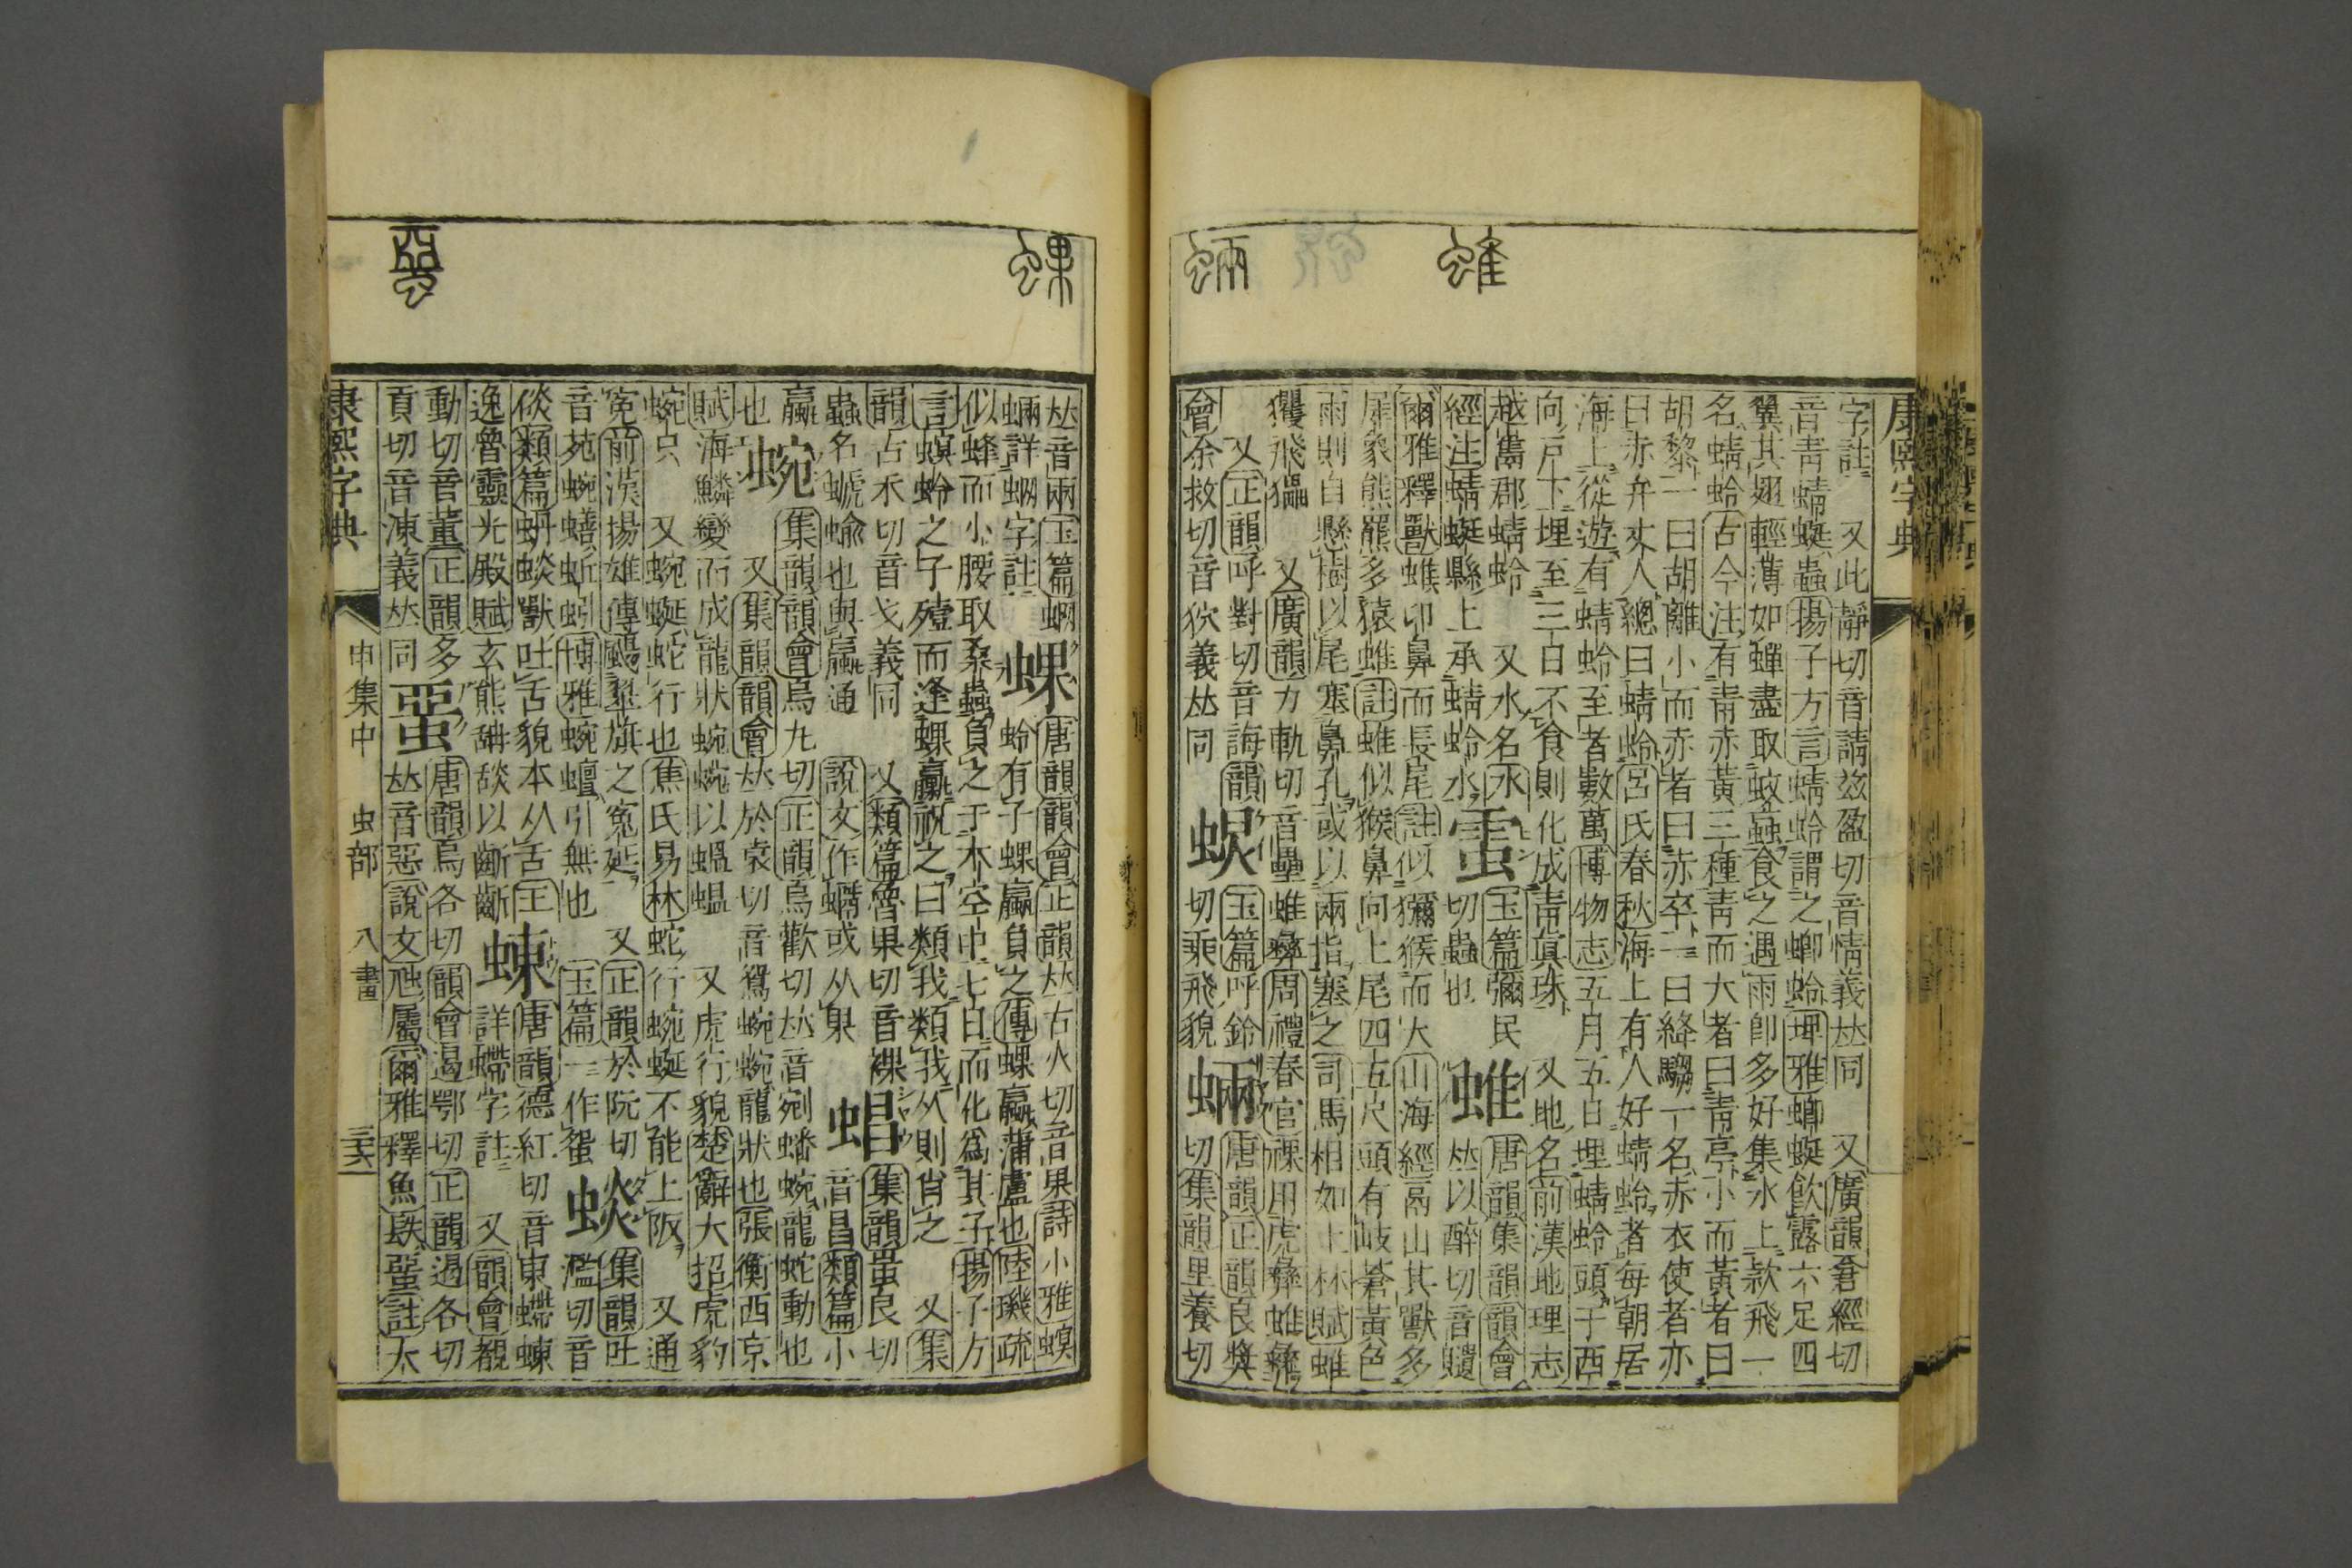 康熙字典
字註 又此靜切音請兹盈切音情義𠀤同 又廣韻倉經切
音靑蜻蜓蟲揚子方言蜻蛉謂之蝍蛉埤雅蜻蜓飮露六足四
翼其翅輕薄如蟬盡取蚊䖟食之遇雨卽多好集水上款飛一
名蜻蛉古今注有靑赤黃三種靑而大者曰靑亭小而黃者曰
胡黎一曰胡離小而赤者曰赤卒一曰絳騶一名赤衣使者亦
曰赤弁丈人總曰蜻蛉呂氏春秋海上有人好蜻蛉者每朝居
海上從遊有蜻蛉至者數萬博物志五月五日埋蜻蛉頭于西
向戸下埋至三日不食則化成靑眞珠 又地名前漢地理志
越巂郡蜻蛉 又水名水
經注蜻蜓縣上承蜻蛉水
玉篇彌民
切蟲也
蜼
唐韻集韻韻會
𠀤以醉切音
爾雅釋獸蜼卬鼻而長尾註似獼猴而大山海經鬲山其獸多
犀象熊羆多猿蜼註蜼似猴鼻向上尾四五尺頭有岐蒼黃色
雨則自懸樹以尾塞鼻孔或以兩指塞之司馬相如上林賦蜼
玃飛 又廣韻力軌切音壘蜼彝周禮春官祼用虎彝蜼彝
又正韻呼對切音誨韻
會余救切音狖義𠀤同
玉篇呼鈴
切乘飛貌
蜽
唐韻正韻良奬
切集韻里養切
𠀤音兩玉篇蝄
蜽詳蝄字註
蜾
唐韻韻會正韻𠀤古火切音果詩小雅螟
蛉有子蜾蠃負之傳蜾蠃蒲盧也陸璣疏
似蜂而小腰取桑蟲負之于木空中七日而化爲其子揚子方
言螟蛉之子殪而逢蜾蠃祝之曰類我類我久則肖之 又集
韻古禾切音戈義同 又類篇魯果切音裸
蟲名螔蝓也與蠃通 說文作蠣或从果
㫟
集韻蚩良切
音昌類篇小
蠃
也
蜿
集韻韻會烏丸切正韻烏歡切𠀤音剜蟠蜿龍蛇動也
又集韻韻會𠀤於袁切音鴛蜿蜿龍狀也張衡西京
賦海鱗變而成龍狀蜿蜿以蝹蝹 又虎行貌楚辭大招虎豹
蜿只 又蜿蜒蛇行也焦氏易林蛇行蜿蜒不能上阪 又通
寃前漢揚雄傳颺翠旗之寃延 又正韻於阮切
音苑蜿蟮蚯蚓博雅蜿蟺引無也 玉篇一作䖤
蜭
集韻吐
濫切音
倓類篇蚦蜭獸吐舌貌本从舌王
逸魯靈光殿賦玄熊䑙䑙以齗齗
蝀
唐韻德紅切音東螮蝀
詳螮字註 又韻會覩
動切音董正韻多
貢切音凍義𠀤同
蝁
唐韻烏各切韻會遏鄂切正韻遏各切
𠀤音惡說文虺屬爾雅釋魚镻蝁註大
康熙字典 申集中 虫部 八畫 三六